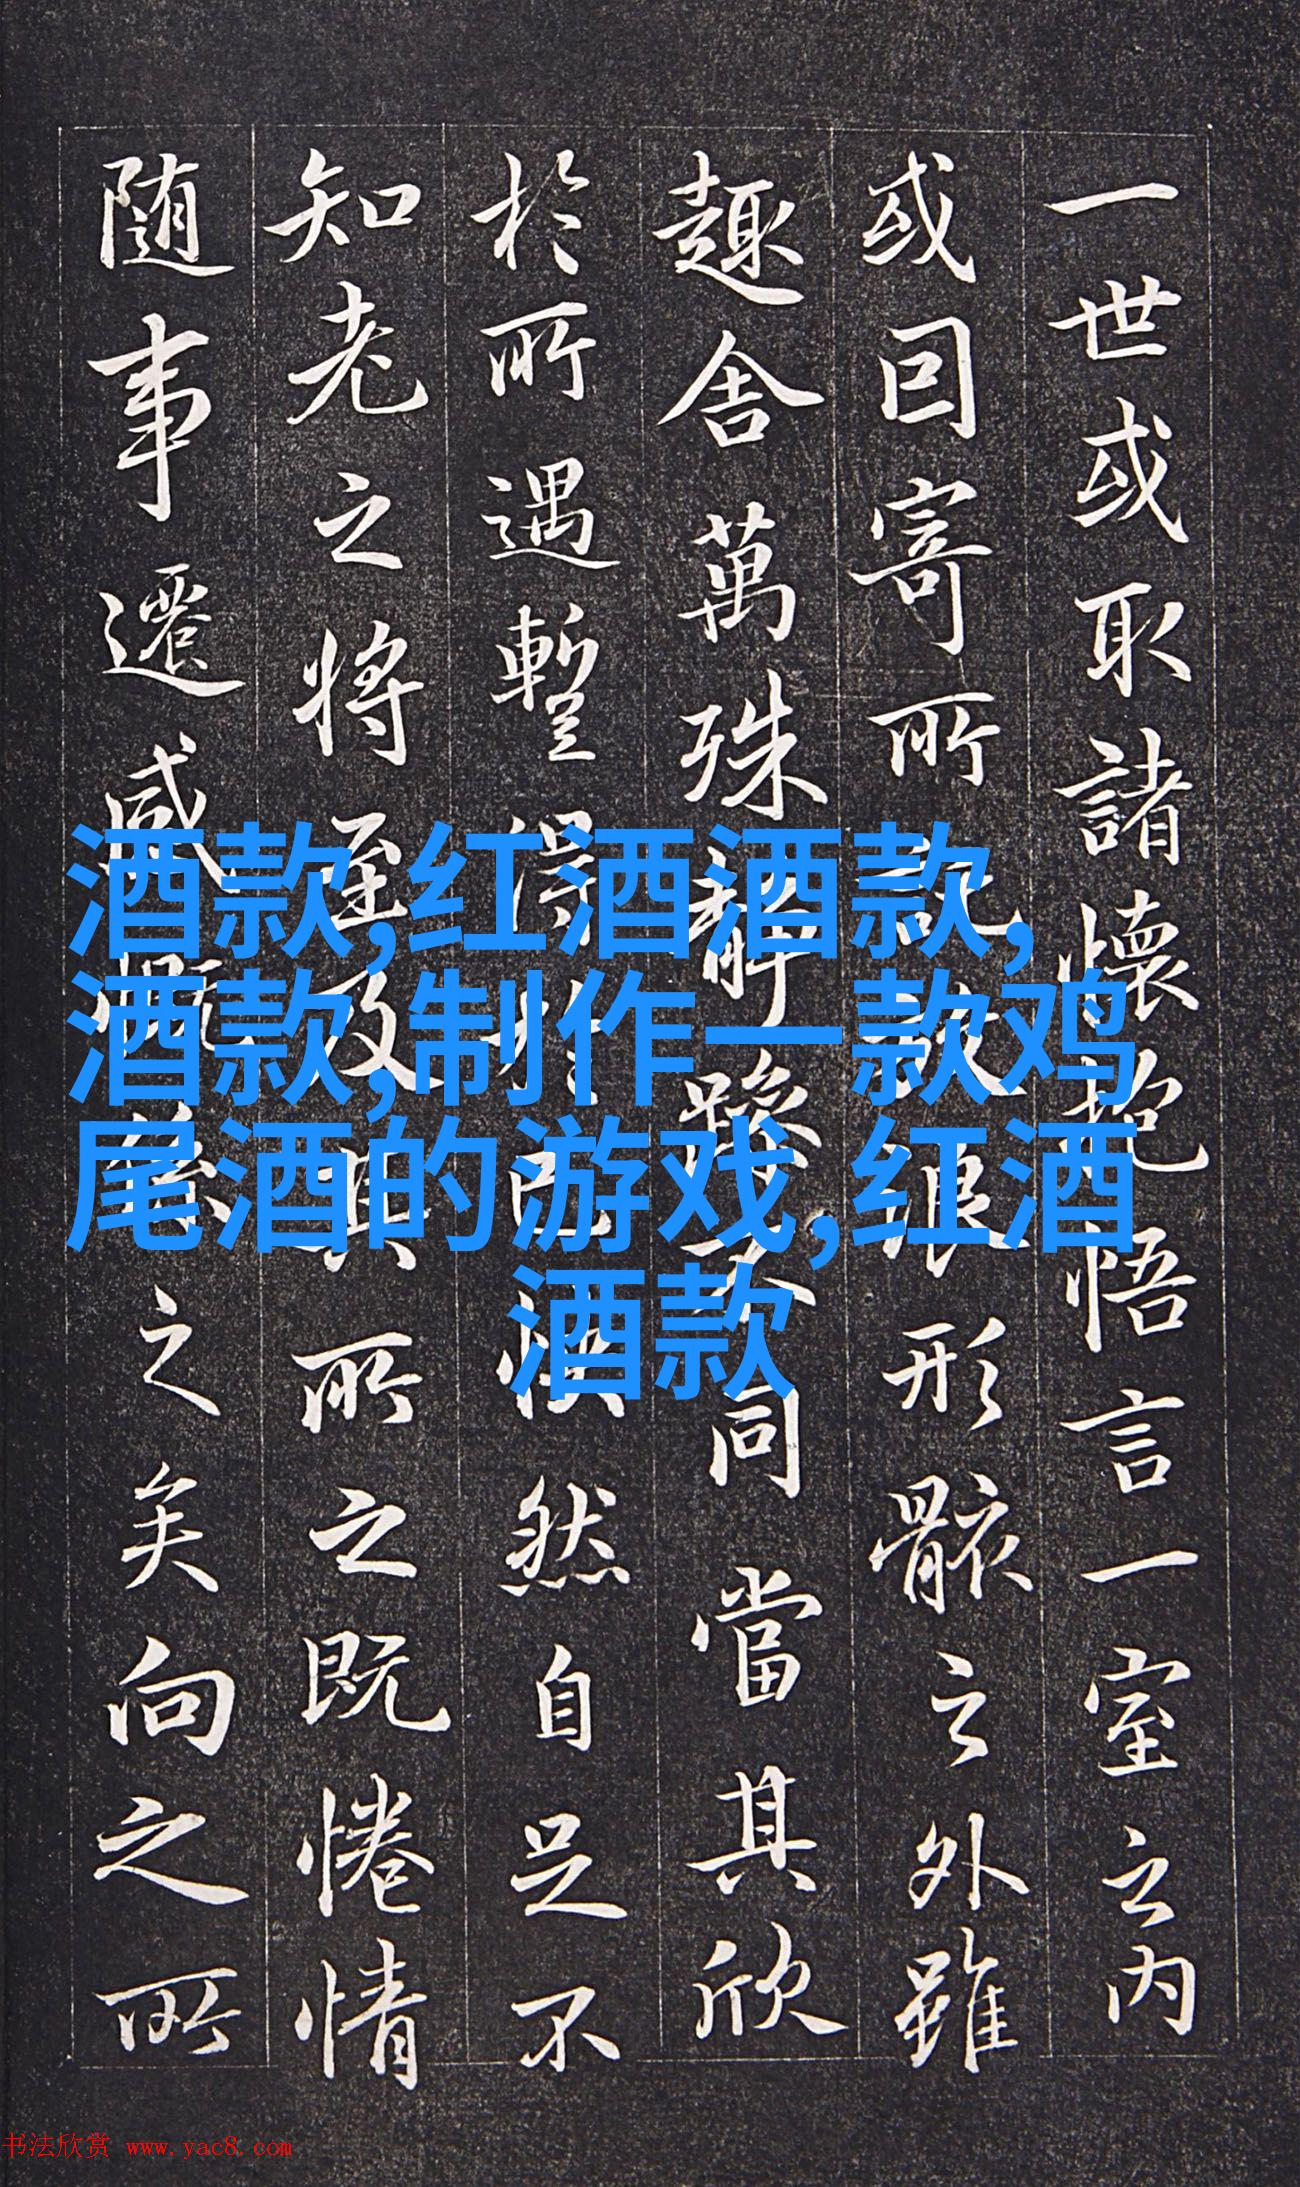 一世或取諸懷抱悟言一室之内
或因寄所託放浪形骸之外雖
趣舍萬殊静躁不同當其欣
於所遇暫得於己快然自足不
知老之将至及其所之既惓情
随事遷感慨係之矣向之所
酒款,红酒酒款,
酒款,制作一款鸡
尾酒的游戏,红酒
酒款
书法欣赏 www.yac8.com